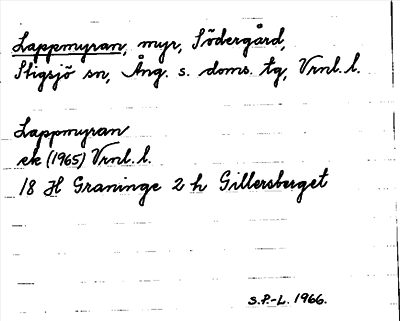 Lappmyran, myr, Södergård,
Stigsjö sn, Ång. s. doms. tg, Vrnl. l.
Lappmyran
ek (1965) Vrnl. l.
18 H Graninge 2 h Gillersberget
S.P.-L. 1966.